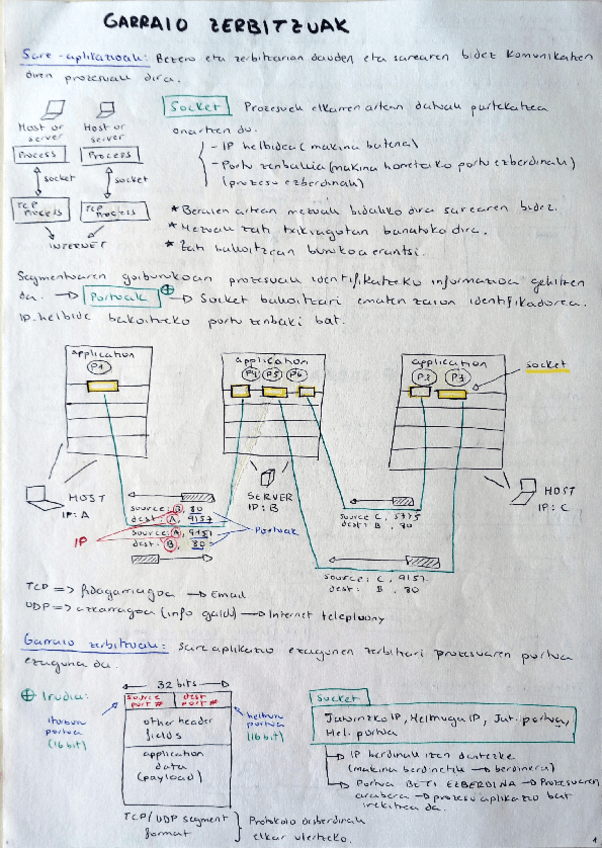 GARRAIO ZERBITZUAK
Sare-aplikazioak: Bezero eta zerbitzarian dauden eta sarearen bidez komunikatzen
diren prozesuak dira.
Host or server
Host or server
Process
Process
socket
socket
TCP Process
TCP Process
INTERNET
Socket Prozesuek elkarren artean datuak partekatzea
onartzen du.
- IP helbidea (makina batena)
- Portu zenbakia (makina horretako portu ezberdinak)
(prozesu ezberdinak)
* Beraien artean mezuak bidaliko dira sarearen bidez.
* Mezuak zati txikiagotan banatuko dira.
* Zati bakoitzean burukoa erantsi.
Segmentuaren goiburukoan prozesuak identifikatzeko informazioa gehitzen
da. → Portuak ⊕ → Socket bakoitzari ematen zaion identifikadorea.
IP-helbide bakoitzeko portu zenbaki bat.
application
P1
application
P4 P5 P6
application
P2 P3
socket
HOST
IP: A
SERVER
IP: B
HOST
IP: C
source: B, 80
dest: A, 9157
source: A, 9157
dest: B, 80
IP
Portuak
source: C, 5775
dest: B, 80
source: C, 9157
dest: B, 80
TCP => fidagarriagoa → Email
UDP => azkarragoa (info galdu) → Internet telephony
Garraio zerbitzuak: sare aplikazio ezagunen zerbitzari prozesuaren portua
ezaguna da.
⊕ Irudia:
32 bits
source port #
dest port #
iturburu
portua
(16 bit)
helburu
portua
(16 bit)
other header
fields
application
data
(payload)
TCP/UDP segment
format
Protokolo desberdinak
elkar ulertzeko.
Socket
Jatorrizko IP, Helmuga IP, Jat. portua,
Hel. portua
→ IP berdinak izan daitezke
(makina berdinetik → berdinera)
→ Portua BETI EZBERDINA → Prozesuaren
arabera → prozesu aplikazio bat
irekitzea da.
1